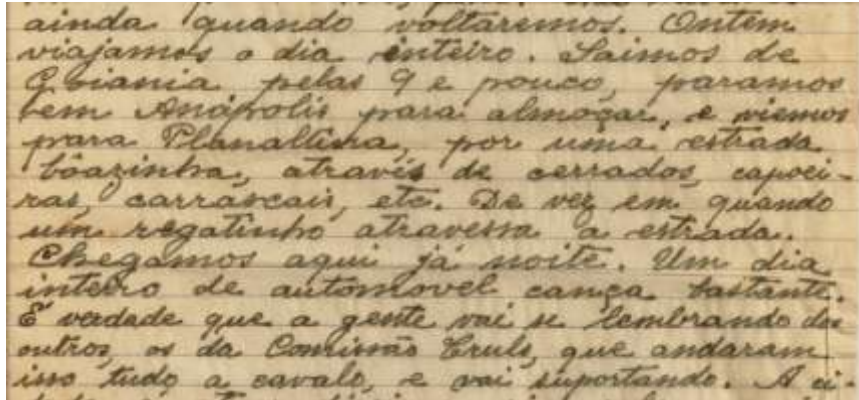 ainda quando voltaremos. Ontem
viajamos o dia inteiro. Saimos de
Goiania pelas 9 e pouco, paramos
em Anápolis para almoçar, e viemos
para Planaltina, por uma estrada
bôazinha, através de cerrados, capoei-
ras, carrascais, etc. De vez em quando
um regatinho atravessa a estrada.
Chegamos aqui já noite. Um dia
inteiro de automovel cança bastante.
É verdade que a gente vai se lembrando dos
outros, os da Comissão Cruls, que andaram
isso tudo a cavalo, e vai suportando. A ci-